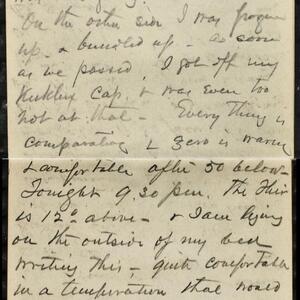 On the other side I was frozen
up & bundled up - as soon
as we passed, I got off my
Kuklux Cap, & was even too
hot at that - Everything is
comparative & zero is warm
& comfortable after 50 below -
Tonight 9.30 p.m. The Ther
is 12° above - & I am lying
on the outside of my bed
writing this - quite comfortable
in a temperature that would